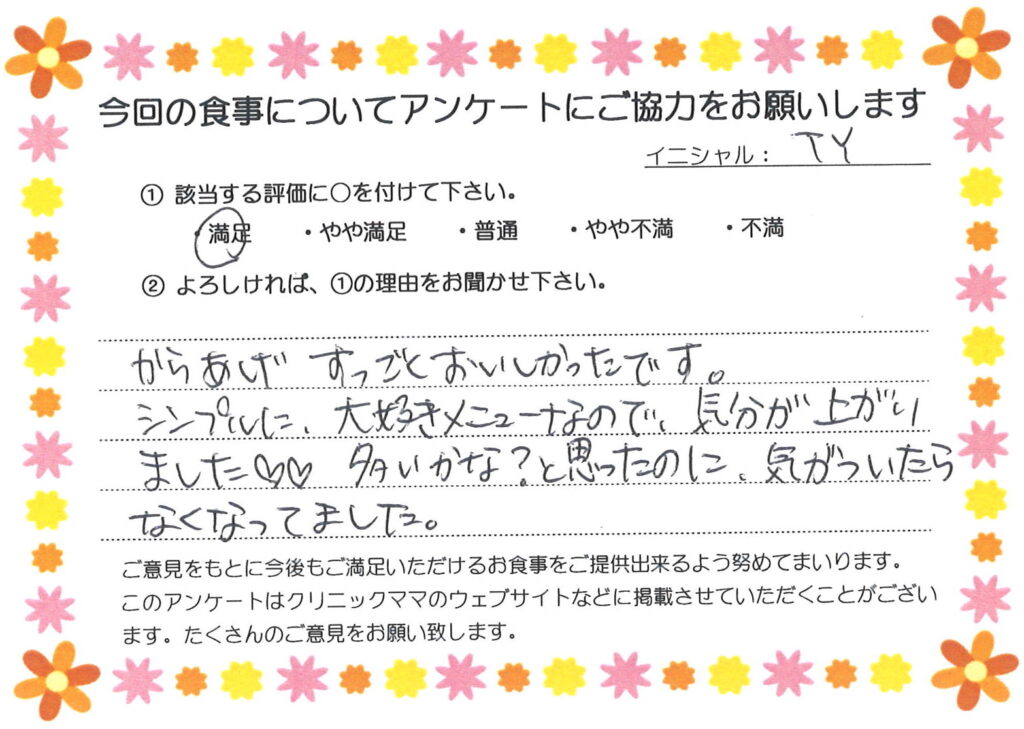 今回の食事についてアンケートにご協力をお願いします
イニシャル： TY
① 該当する評価に〇を付けて下さい。
・満足 ・やや満足 ・普通 ・やや不満 ・不満
② よろしければ、①の理由をお聞かせ下さい。
からあげ すっごくおいしかったです。
シンプルに、大好きメニューなので、気分が上がり
ました♡♡ 多いかな？と思ったのに、気がついたら
なくなってました。
ご意見をもとに今後もご満足いただけるお食事をご提供出来るよう努めてまいります。
このアンケートはクリニックママのウェブサイトなどに掲載させていただくことがござい
ます。たくさんのご意見をお願い致します。